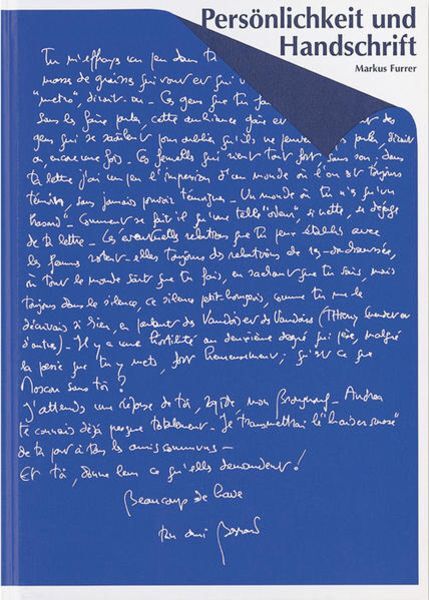 Persönlichkeit und
Handschrift
Markus Furrer
Tu m'effrayes un peu dans ta
masse de graisse qui vont et qui
"métro", dirait-on – Ces gens que tu
sans les faire parler, cette ambiance
gens qui se saoulent pour oublier qu'ils ne peuvent parler, dirait
on encore une fois. – Ces femelles qui rient tout fort, sans son; dans
ta lettre j'ai un peu l'impression d'un monde où l'on est toujours
témoin, sans jamais pouvoir témoigner – Un monde où tu n'es qu'un
hasard" – Comment se fait-il qu'une telle "odeur", si nette, se dégage
de ta lettre – Ces éventuelles relations que tu peux établir avec
les femmes sont-elles toujours des relations de
où tout le monde sait que tu fais, en sachant que tu sais, mais
toujours dans le silence, ce silence petit-bourgeois, comme tu me le
décrivais si bien, en parlant des Vaudois et des Vaudoises (Thierry
d'autres). Il y a une hostilité au deuxième degré qui gêne, malgré
la poésie que tu y mets, fort heureusement; qu'est-ce que
Moscou sans toi ?
J'attends une réponse de toi, mon
te connais déjà presque totalement – Je transmettrai le "baiser russe"
de ta part à tous les amis communs –
Et toi, donne leur ce qu'elles demandent !
Beaucoup de love
ton ami